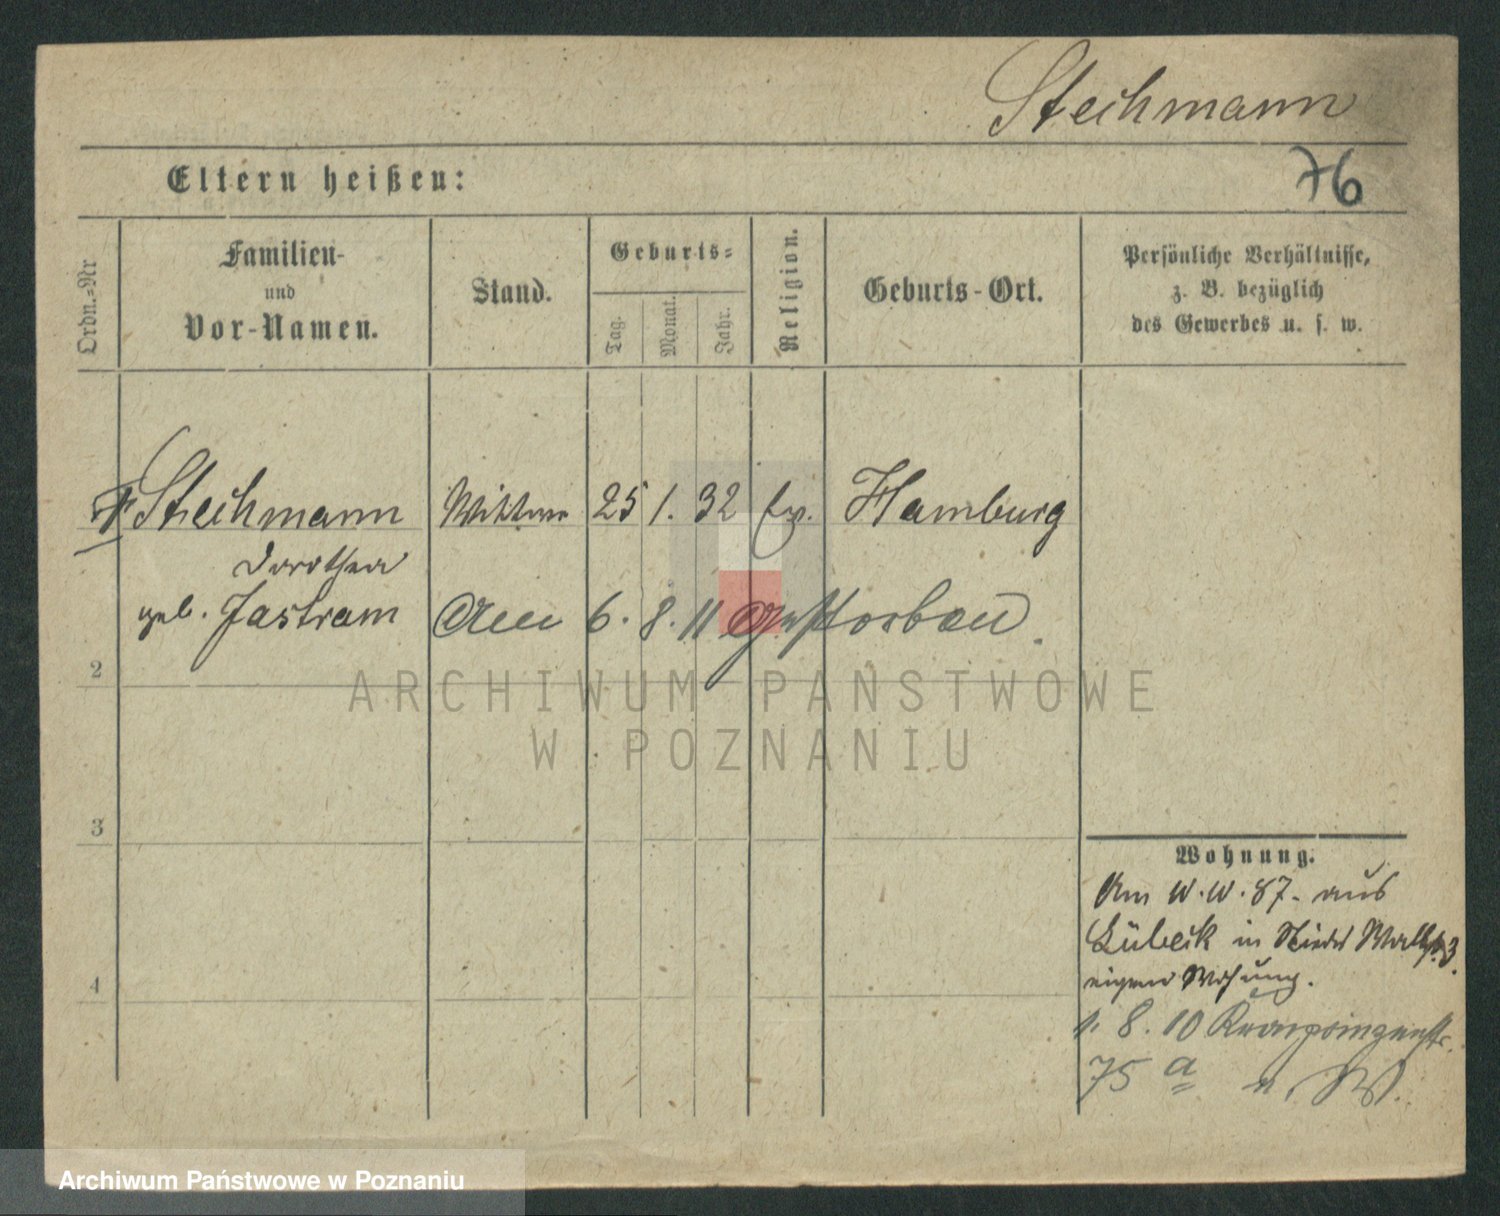 Stechmann
76
Eltern heißen:
Ordn.=Nr
Familien-
und
Vor-Namen.
Stand.
Geburts=
Tag.
Monat.
Jahr.
Religion.
Geburts-Ort.
Persönliche Verhältnisse,
z. B. bezüglich
des Gewerbes u. s. w.
Stechmann Wittwe 25 1. 32 Ev. Hamburg
Dorothea
geb. Jastram Am 6. 8. 11 gestorben.
2
3
4
Wohnung.
Am 87. aus
Lübeck in Wallstr. 3.
eigene Wohnung.
1. 8. 10 Kronprinzenstr.
75 a
ARCHIWUM PAŃSTWOWE
W POZNANIU
Archiwum Państwowe w Poznaniu